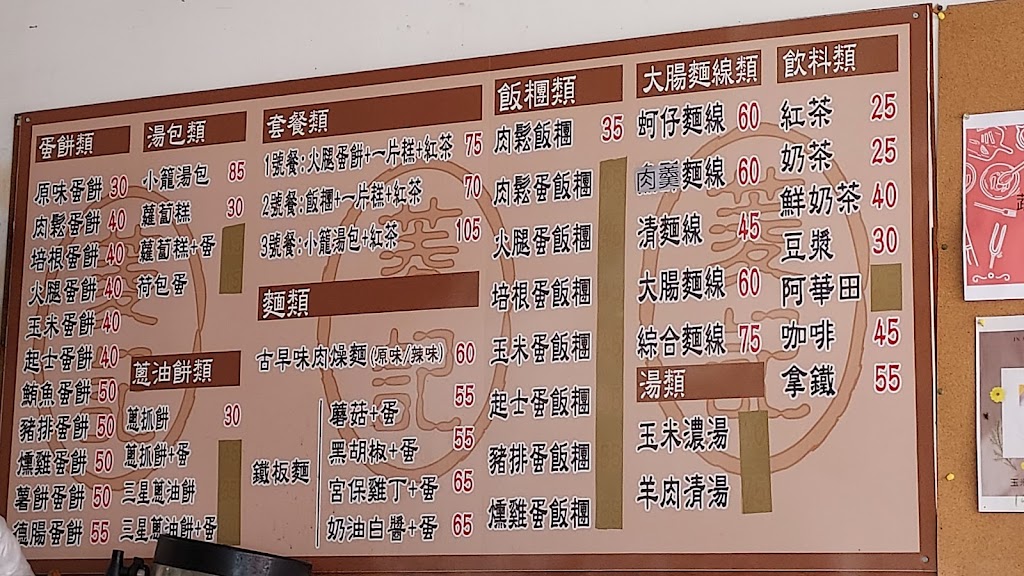 蛋餅類
原味蛋餅 30
肉鬆蛋餅 40
培根蛋餅 40
火腿蛋餅 40
玉米蛋餅 40
起士蛋餅 40
鮪魚蛋餅 50
豬排蛋餅 50
燻雞蛋餅 50
薯餅蛋餅 50
德腸蛋餅 55
湯包類
小籠湯包 85
蘿蔔糕 30
蘿蔔糕+蛋
荷包蛋
蔥油餅類
蔥抓餅 30
蔥抓餅+蛋
三星蔥油餅
三星蔥油餅+蛋
套餐類
1號餐:火腿蛋餅+一片糕+紅茶 75
2號餐:飯糰+一片糕+紅茶 70
3號餐:小籠湯包+紅茶 105
麵類
古早味肉燥麵(原味/辣味) 60
鐵板麵
蘑菇+蛋 55
黑胡椒+蛋 55
宮保雞丁+蛋 65
奶油白醬+蛋 65
飯糰類
肉鬆飯糰 35
肉鬆蛋飯糰
火腿蛋飯糰
培根蛋飯糰
玉米蛋飯糰
起士蛋飯糰
豬排蛋飯糰
燻雞蛋飯糰
大腸麵線類
蚵仔麵線 60
肉羹麵線 60
清麵線 45
大腸麵線 60
綜合麵線 75
湯類
玉米濃湯
羊肉清湯
飲料類
紅茶 25
奶茶 25
鮮奶茶 40
豆漿 30
阿華田
咖啡 45
拿鐵 55